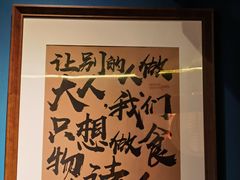 让别的人做
大人,我们
只想做食
物诗人